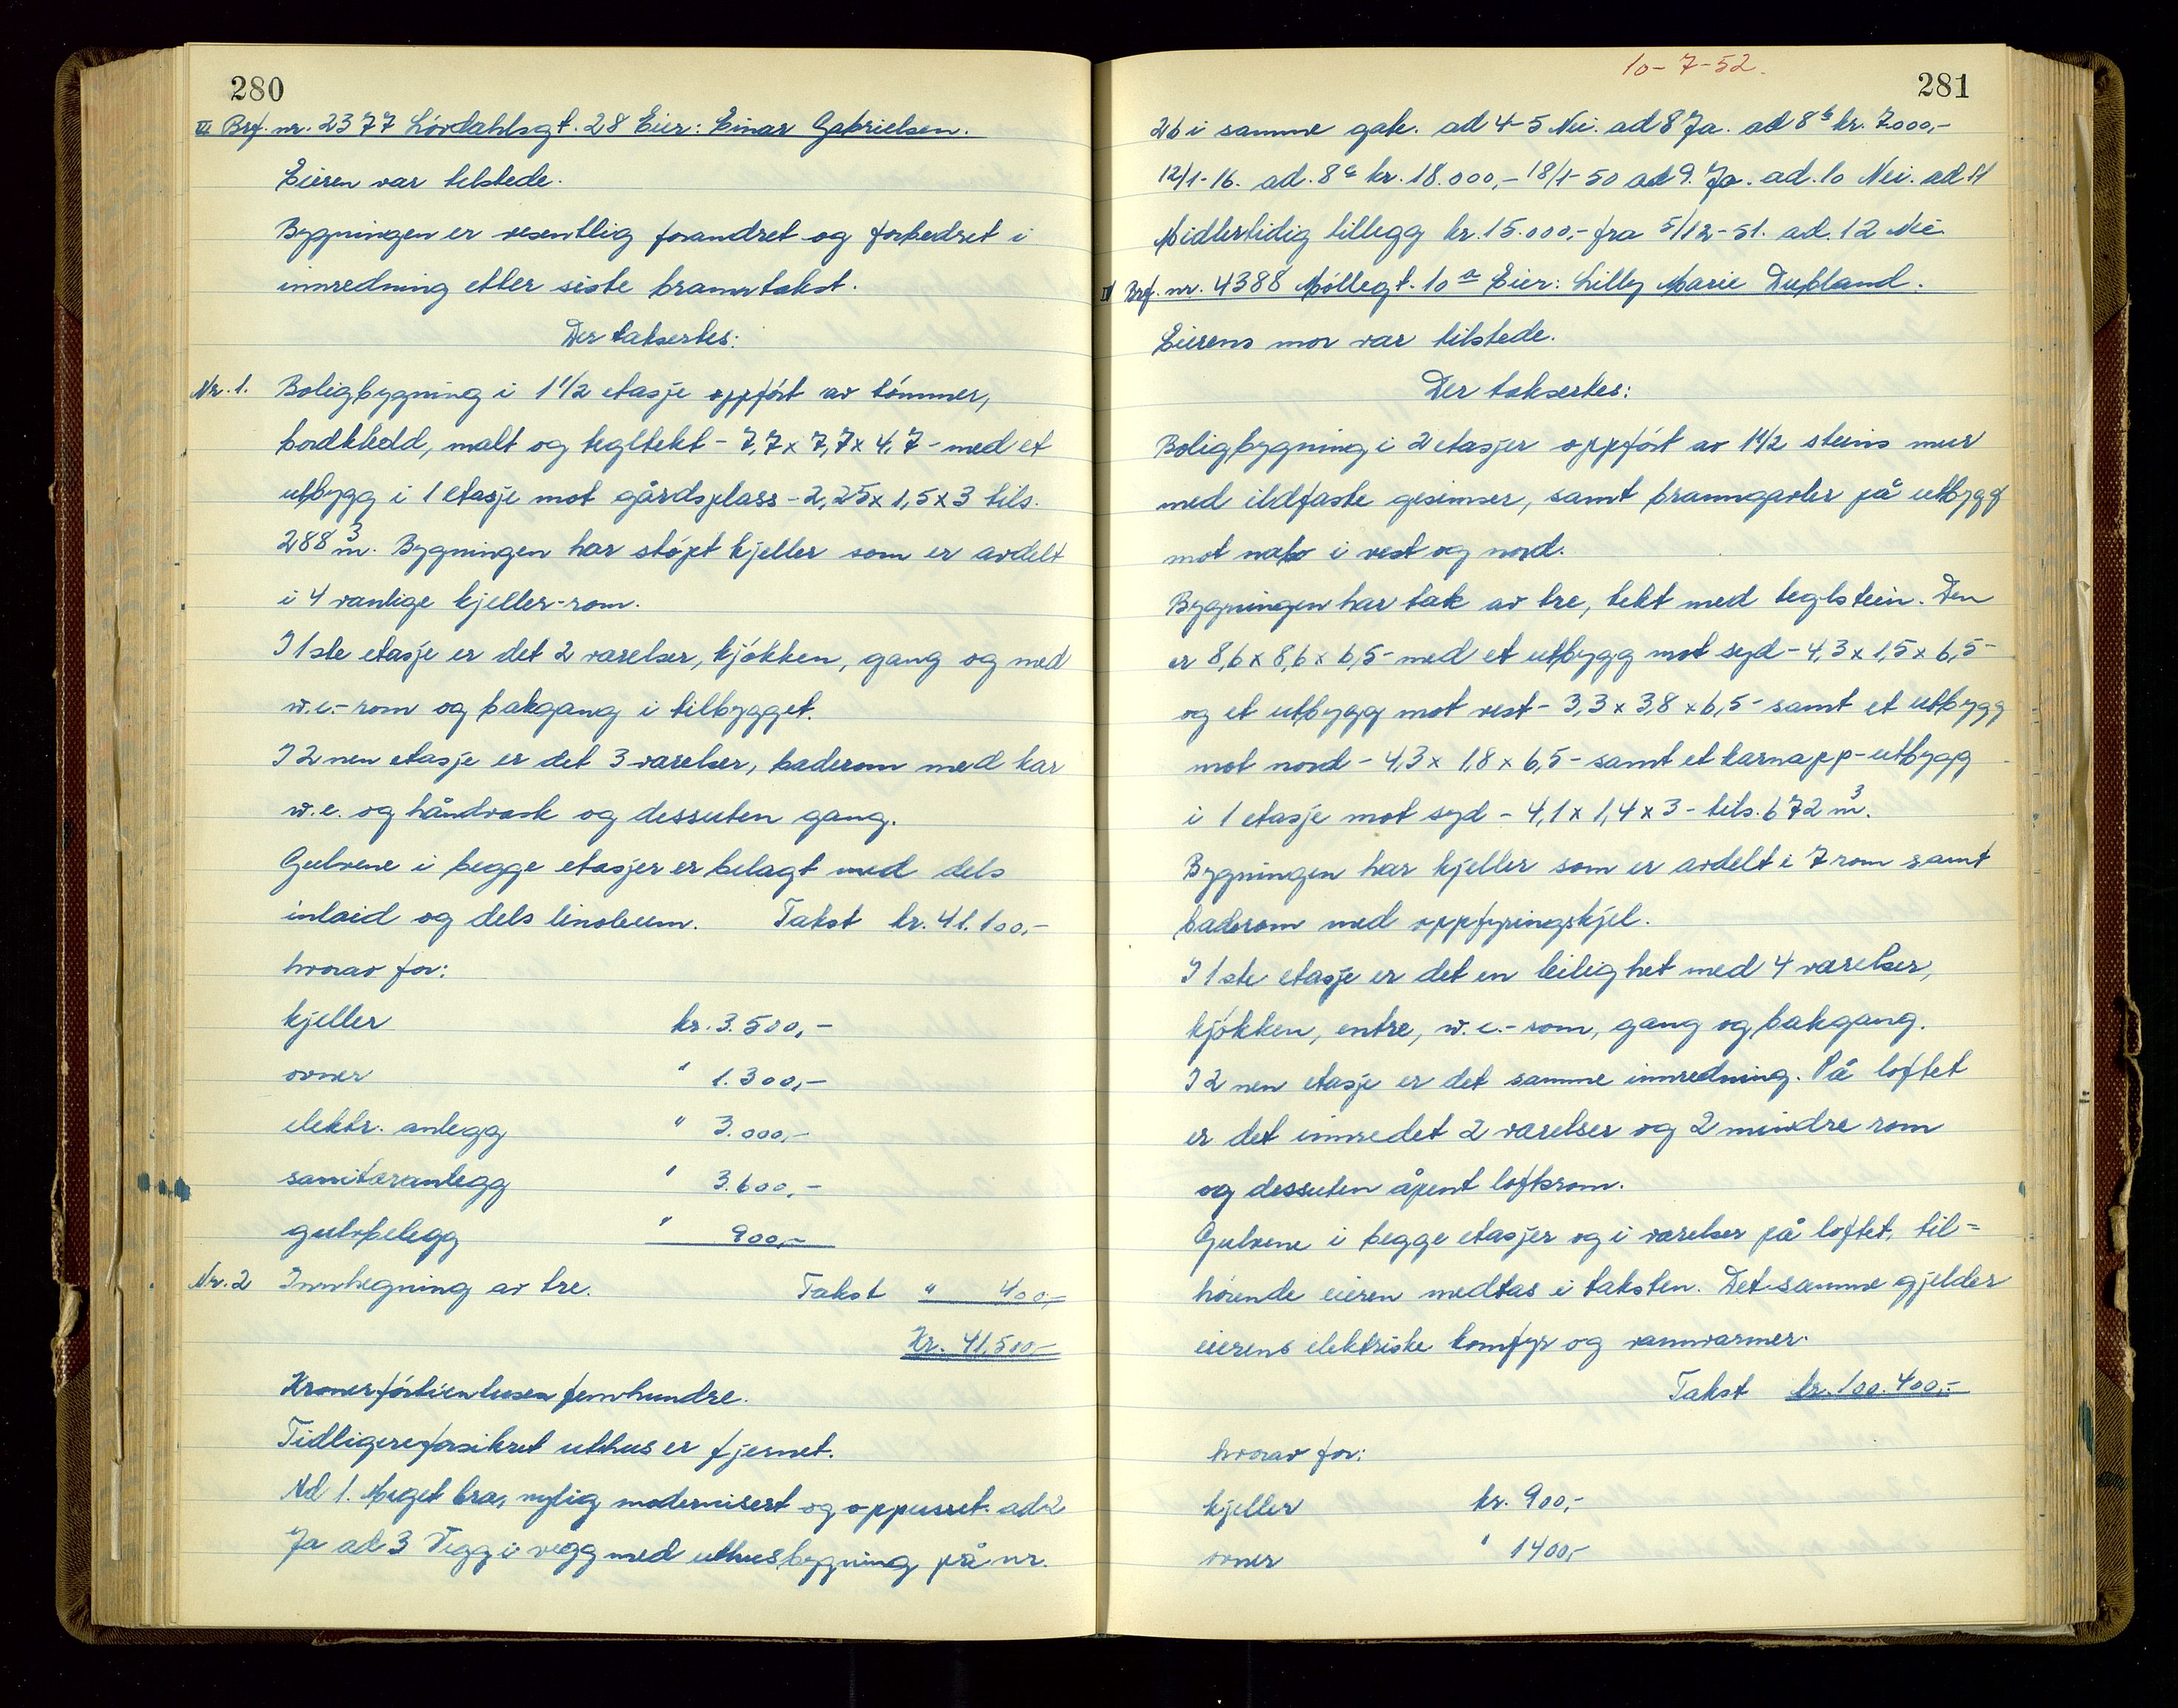 280
III Brf. nr. 2377 Lövdahlsgt. 28 Eier: Einar Gabrielsen.
Eieren var tilstede.
Bygningen er vesentlig forandret og forbedret i
innredning etter siste branntakst.
Der taksertes:
Nr. 1. Boligbygning i 1 1/2 etasje oppført av tømmer,
bordkledd, malt og tegltekt - 7,7 x 7,7 x 4,7 - med et
utbygg i 1 etasje mot gårdsplass - 2,25 x 1,5 x 3 tils.
288 m³. Bygningen har støpt kjeller som er avdelt
i 4 vanlige kjeller-rom.
I 1ste etasje er det 2 værelser, kjøkken, gang og med
w.c.-rom og bakgang i tilbygget.
I 2nen etasje er det 3 værelser, baderom med kar
w.c. og håndvask og dessuten gang.
Gulvene i begge etasjer er belagt med dels
inlaid og dels linoleum. Takst kr. 41.100,-
hvorav for:
kjeller kr. 3.500,-
ovner " 1.300,-
elektr. anlegg " 3.000,-
sanitæranlegg " 3.600,-
gulvbelegg " 900,-
Nr. 2 Innhegning av tre. Takst " 400,-
Kr. 41.500,-
Kronerførtientusen femhundre.
Tidligere forsikret uthus er fjernet.
Ad 1. Meget bra, nylig modernisert og oppusset. ad 2
Ja ad 3 Vegg i vegg med uthusbygning på nr.
10-7-52.
281
26 i samme gate. ad 4-5 Nei. ad 8 Ja. ad 8 b kr. 7.000,-
12/1-16. ad. 8 c kr. 18.000,- 18/1-50 ad 9. Ja. ad. 10 Nei. ad 11
Midlertidig tillegg kr. 15.000,- fra 5/12-51. ad. 12 Nei.
IV Brf. nr. 4388 Møllegt. 10 a Eier: Lilly Marie Dubland.
Eierens mor var tilstede.
Der taksertes:
Boligbygning i 2 etasjer oppført av 1 1/2 steins mur
med ildfaste gesimser, samt branngavler på utbygg
mot nabo i vest og nord.
Bygningen har tak av tre, tekt med teglstein. Den
er 8,6 x 8,6 x 6,5 - med et utbygg mot syd - 4,3 x 1,5 x 6,5 -
og et utbygg mot vest - 3,3 x 3,8 x 6,5 - samt et utbygg
mot nord - 4,3 x 1,8 x 6,5 - samt et karnapp-utbygg
i 1 etasje mot syd - 4,1 x 1,4 x 3 - tils. 672 m³.
Bygningen har kjeller som er avdelt i 7 rom samt
baderom med oppfyringskjel.
I 1ste etasje er det en leilighet med 4 værelser,
kjøkken, entre, w.c.-rom, gang og bakgang.
I 2nen etasje er det samme innredning. På loftet
er det innredet 2 værelser og 2 mindre rom
og dessuten åpent loftsrom.
Gulvene i begge etasjer og i værelser på loftet, til=
hørende eieren medtas i taksten. Det samme gjelder
eierens elektriske komfyr og vannvarmer.
Takst kr. 100.400,-
hvorav for:
kjeller kr. 900,-
ovner " 1400,-